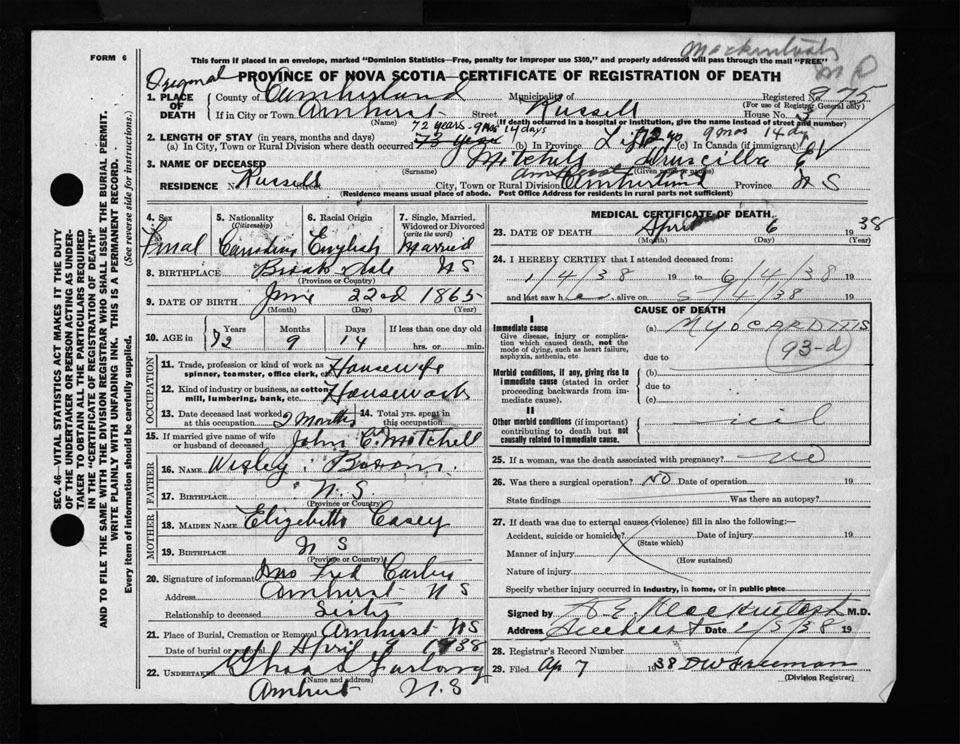 Mackintosh
M D
FORM 6
This form if placed in an envelope, marked "Dominion Statistics—Free, penalty for improper use $300," and properly addressed will pass through the mail "FREE"
Original
PROVINCE OF NOVA SCOTIA—CERTIFICATE OF REGISTRATION OF DEATH
1. PLACE OF DEATH County of Cumberland Municipality of Registered No. 875
(For use of Registrar General only)
If in City or Town Amherst Street Russell House No. 3
(Name) (If death occurred in a hospital or institution, give the name instead of street and number)
72 years - 9 Mos 14 days
2. LENGTH OF STAY (in years, months and days)
(a) In City, Town or Rural Division where death occurred 72 years (b) In Province Life 72 yo 9 mos 14 dy (c) In Canada (if immigrant)
3. NAME OF DECEASED Mitchell Druscilla
(Surname) (Given name or names)
RESIDENCE No. Russell Street City, Town or Rural Division Amherst Cumberland Province N S
(Residence means usual place of abode. Post Office Address for residents in rural parts not sufficient)
4. Sex 5. Nationality (Citizenship) 6. Racial Origin 7. Single, Married, Widowed or Divorced (write the word)
Femal Canadian English Married
8. BIRTHPLACE Brookdale N S
(Province or Country)
9. DATE OF BIRTH June 22nd 1865
(Month) (Day) (Year)
10. AGE in Years Months Days If less than one day old
72 9 14 hrs. or min.
OCCUPATION
11. Trade, profession or kind of work as spinner, teamster, office clerk, etc. Housewife
12. Kind of industry or business, as cotton mill, lumbering, bank, etc. Housework
13. Date deceased last worked at this occupation 2 Months 14. Total yrs. spent in this occupation
15. If married give name of wife or husband of deceased John C. Mitchell
FATHER
16. NAME Wesley
17. BIRTHPLACE N. S.
(Province or Country)
MOTHER
18. MAIDEN NAME Elizabeth Casey
19. BIRTHPLACE N S
(Province or Country)
20. Signature of informant Mrs Fred
Address Amherst N S
Relationship to deceased Sister
21. Place of Burial, Cremation or Removal Amherst N S
Date of burial or removal April 9 1938
22. UNDERTAKER Furlong
(Name and address)
Amherst N. S
MEDICAL CERTIFICATE OF DEATH
23. DATE OF DEATH April 6 1938
(Month) (Day) (Year)
24. I HEREBY CERTIFY that I attended deceased from:
1/4/38 19 to 6/4/38 19
and last saw her alive on 5/4/38 19
CAUSE OF DEATH
I
Immediate cause (a) MYOCARDITIS
Give disease, injury or complication which caused death, not the mode of dying, such as heart failure, asphyxia, asthenia, etc. due to
93-d
Morbid conditions, if any, giving rise to immediate cause (stated in order proceeding backwards from immediate cause). (b)
due to
(c)
II
Other morbid conditions (if important) contributing to death but not causally related to immediate cause. nil
25. If a woman, was the death associated with pregnancy? No
26. Was there a surgical operation? NO Date of operation 19
State findings Was there an autopsy?
27. If death was due to external causes (violence) fill in also the following:—
Accident, suicide or homicide? Date of injury 19
(State which)
Manner of injury
(How sustained)
Nature of injury
Specify whether injury occurred in industry, in home, or in public place
Signed by A. E. Mackintosh M.D.
Address Amherst Date 19
28. Registrar's Record Number
29. Filed Ap 7 1938 D W Freeman
(Division Registrar)
SEC. 46—VITAL STATISTICS ACT MAKES IT THE DUTY
OF THE UNDERTAKER OR PERSON ACTING AS UNDER-
TAKER TO OBTAIN ALL THE PARTICULARS REQUIRED
IN THE "CERTIFICATE OF REGISTRATION OF DEATH"
AND TO FILE THE SAME WITH THE DIVISION REGISTRAR WHO SHALL ISSUE THE BURIAL PERMIT.
WRITE PLAINLY WITH UNFADING INK. THIS IS A PERMANENT RECORD.
Every item of information should be carefully supplied. (See reverse side for instructions.)